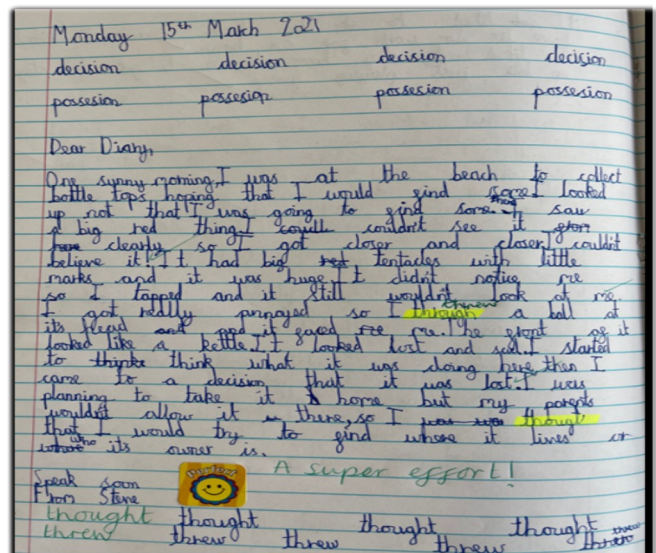 Monday 15th March 2021
decision decision decision decision
possesion possesion possesion possesion
Dear Diary,
One sunny morning, I was at the beach to collect
bottle tops hoping that I would find some. I looked
up not that I was going to find some. I saw
a big red thing. I couldn't see it
clearly so I got closer and closer, I couldn't
believe it! It had big tentacles with little
marks and it was huge. It didn't notice me
so I tapped and it still wouldn't look at me
I got really annoyed so I through threw a ball at
its head and it faced me. The front of it
looked like a kettle. It looked lost and sad. I started
to think what it was doing here then I
came to a decision that it was lost. I was
planning to take it home but my parents
wouldn't allow it there, so I thought
that I would try to find where it lives or
who its owner is.
Perfect A super effort!
Speak soon
From Steve
thought thought thought thought
threw threw threw threw threw